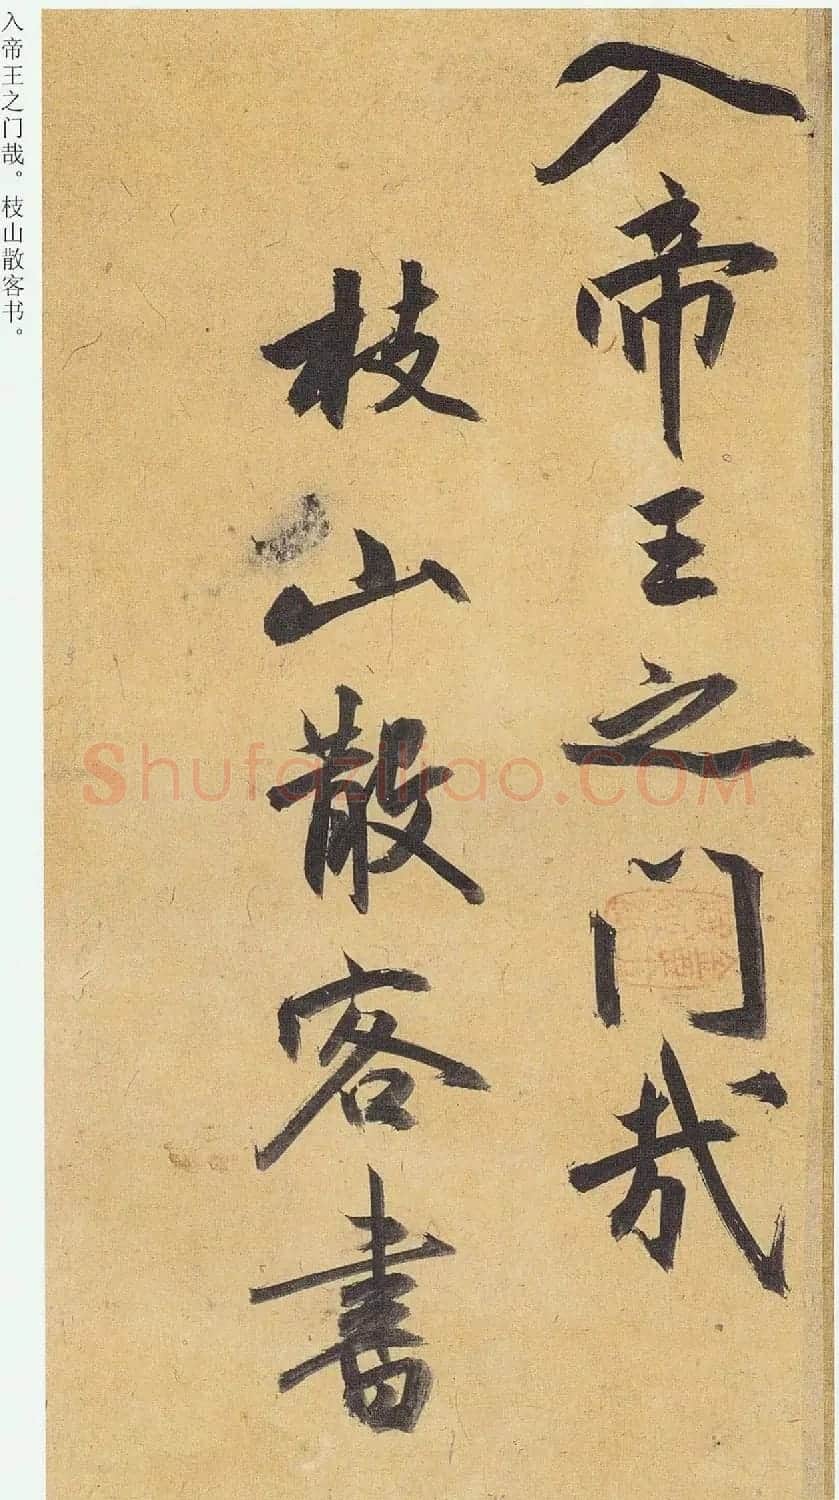 入帝王之门哉
枝山散客書
入帝王之门哉。枝山散客书。
Shufaziliao.COM